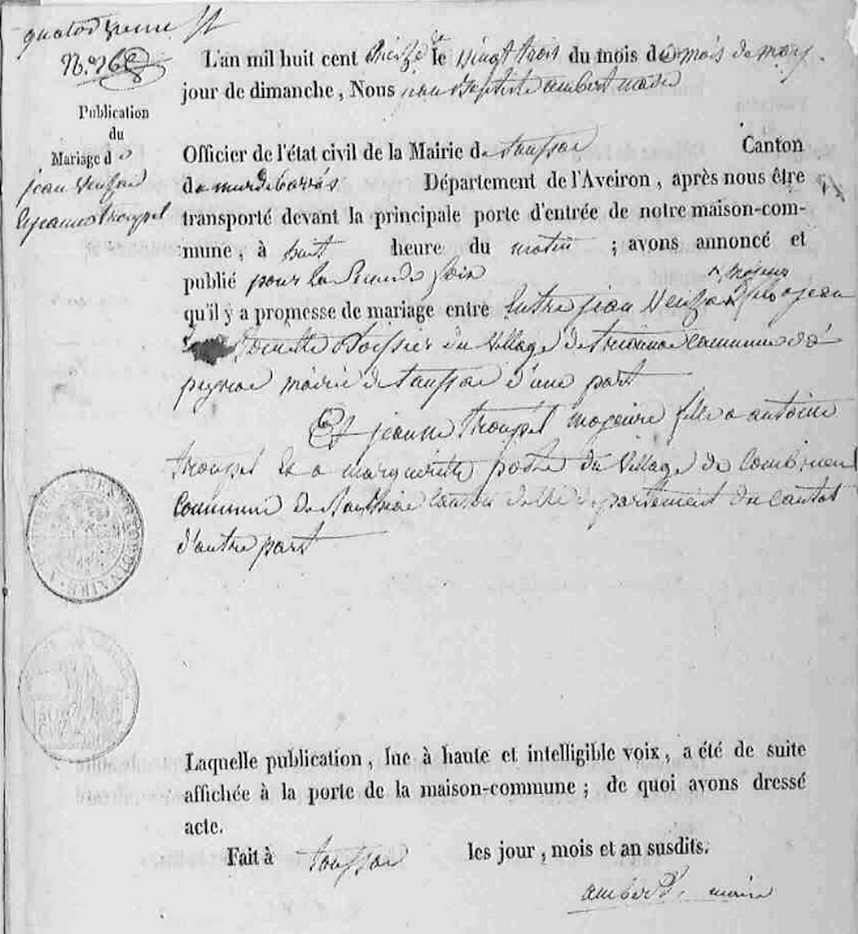 quatorzieme
N.° 268
Publication
du
Mariage d e
jean Venzac
et jeanne troupel
L'an mil huit cent treize le vingt trois du mois de mois de may.
jour de dimanche, Nous jean Baptiste ambert maire
Officier de l'état civil de la Mairie de taussac Canton
de murdebarrés Département de l'Aveiron, après nous être
transporté devant la principale porte d'entrée de notre maison-com-
mune, à huit heure du matin ; avons annoncé et
publié pour la seconde fois
qu'il y a promesse de mariage entre Entre jean Venzac majeur fils a jean
du Village de commune de
mairie de taussac d'une part
Et jeanne troupel majeure fille a antoine
troupel et a marguerite du Village de
Commune de canton de departement du cantal
d'autre part
Laquelle publication, lue à haute et intelligible voix, a été de suite
affichée à la porte de la maison-commune ; de quoi avons dressé
acte.
Fait à taussac les jour, mois et an susdits.
ambert, maire